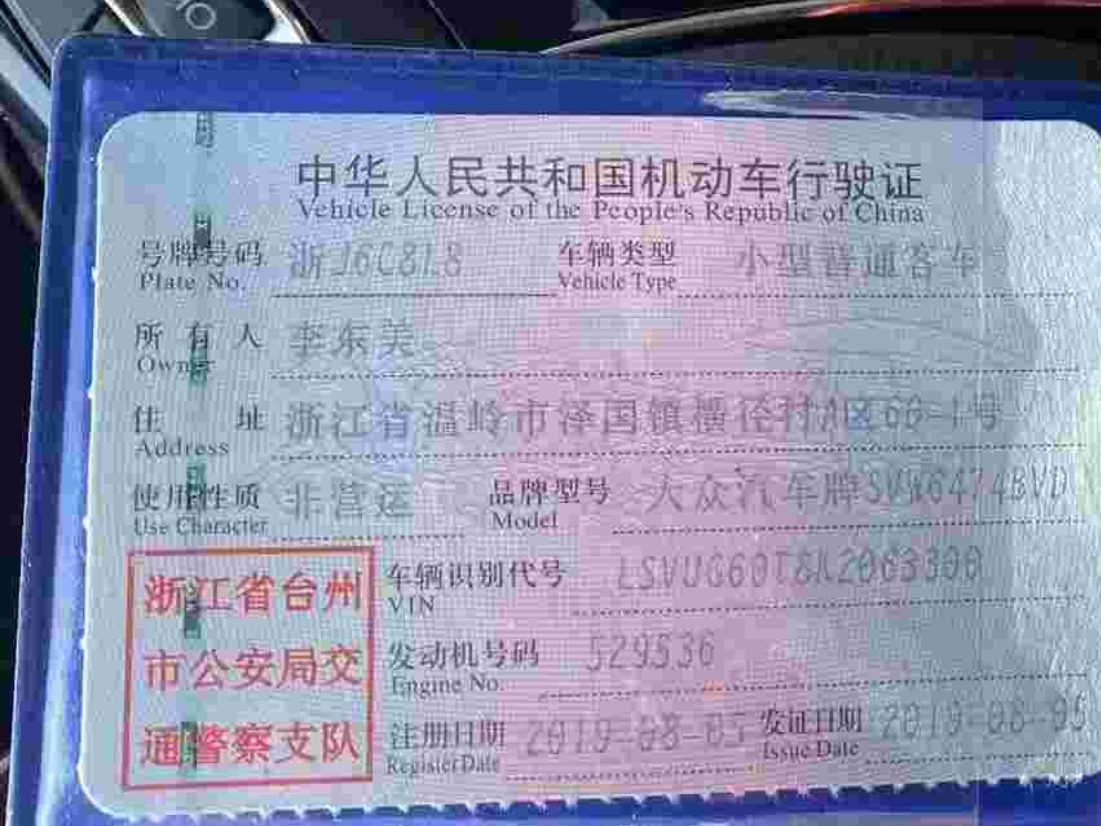 中华人民共和国机动车行驶证
Vehicle License of the People's Republic of China
号牌号码 浙J6C8L8 车辆类型 小型普通客车
Plate No. Vehicle Type
所有人 李东美
Owner
住址 浙江省温岭市泽国镇横径村A区60-1号
Address
使用性质 非营运 品牌型号 大众汽车牌SVW6474BVD
Use Character Model
浙江省台州
市公安局交
通警察支队
车辆识别代号
VIN
发动机号码 529536
Engine No.
注册日期 2019-08-05 发证日期 2019-08-05
Register Date Issue Date